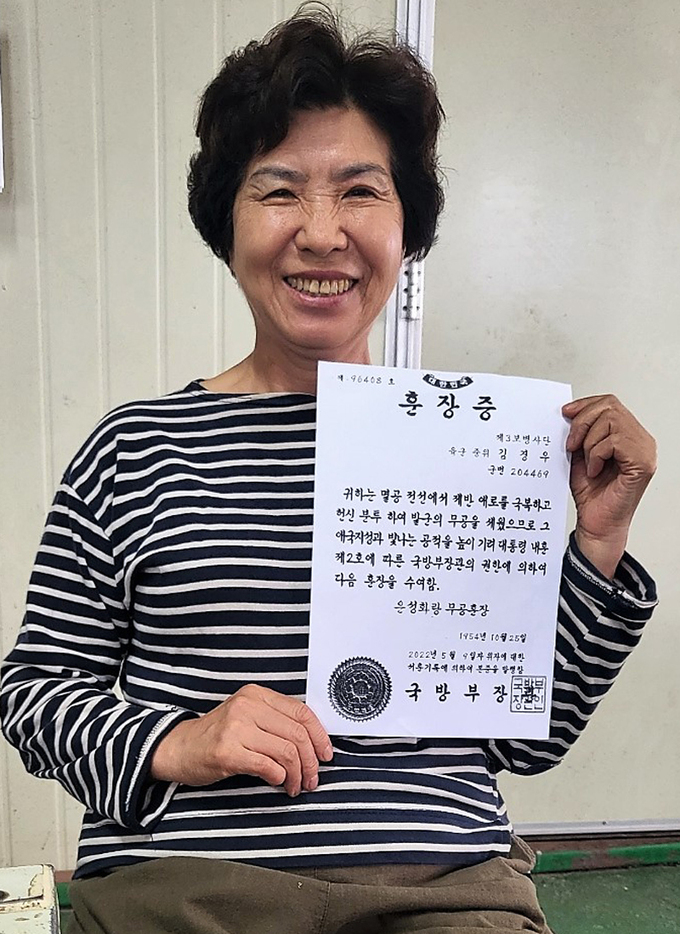 제 96408 호
대한민국
훈장증
제3보병사단
육군 중위 김경우
군번 204469
귀하는 멸공 전선에서 제반 애로를 극복하고
헌신 분투 하여 발군의 무공을 세웠으므로 그
애국지성과 빛나는 공적을 높이 기려 대통령 내훈
제2호에 따른 국방부장관의 권한에 의하여
다음 훈장을 수여함.
은성화랑 무공훈장
1954년 10월 25일
2022년 5월 9일자 위자에 대한
서훈기록에 의하여 본증을 발행함
국방부장관
국방부
장관인